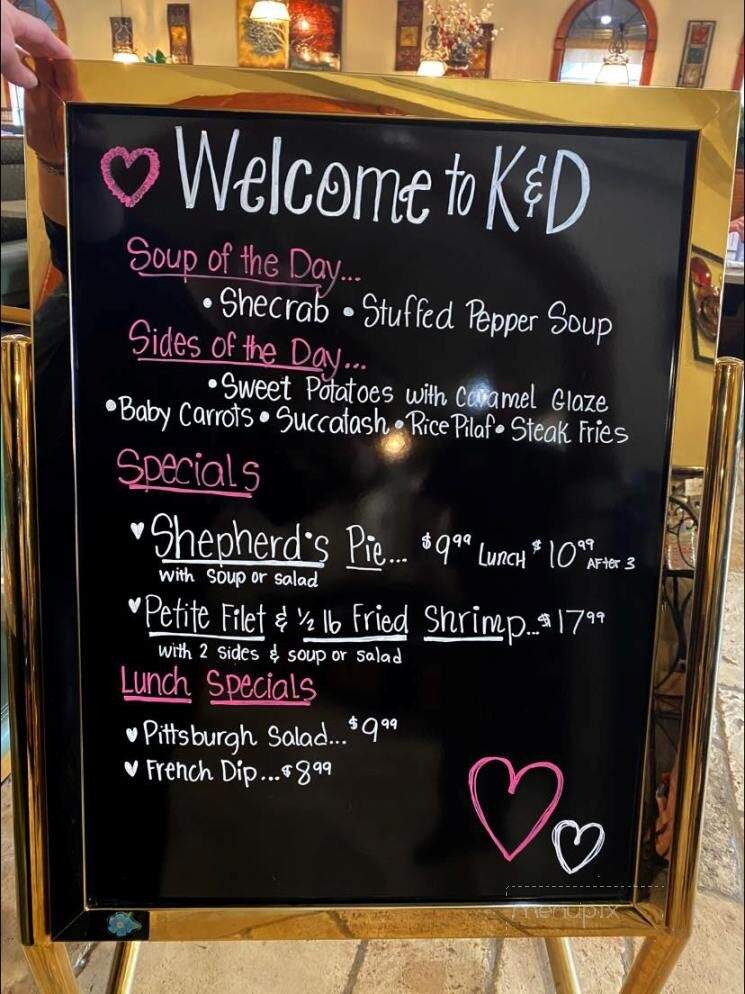 Welcome to K&D
Soup of the Day...
• Shecrab • Stuffed Pepper Soup
Sides of the Day...
• Sweet Potatoes with Caramel Glaze
• Baby Carrots • Succatash • Rice Pilaf • Steak Fries
Specials
Shepherd's Pie... $9.99 Lunch $10.99 After 3
with soup or salad
Petite Filet & ½ lb Fried Shrimp...$17.99
with 2 sides & soup or salad
Lunch Specials
Pittsburgh Salad...$9.99
French Dip...$8.99
menupix